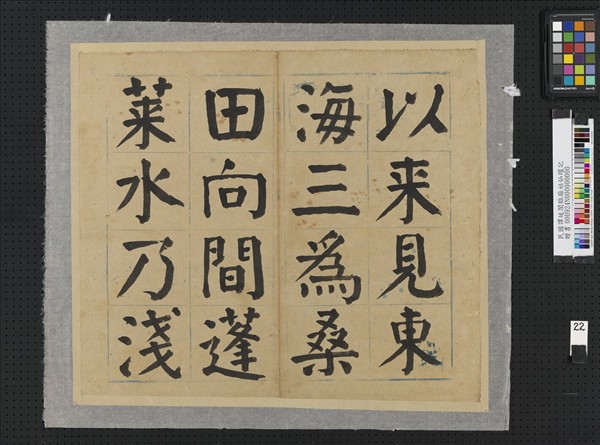 以来見東
海三為桑
田向間蓬
莱水乃淺
22